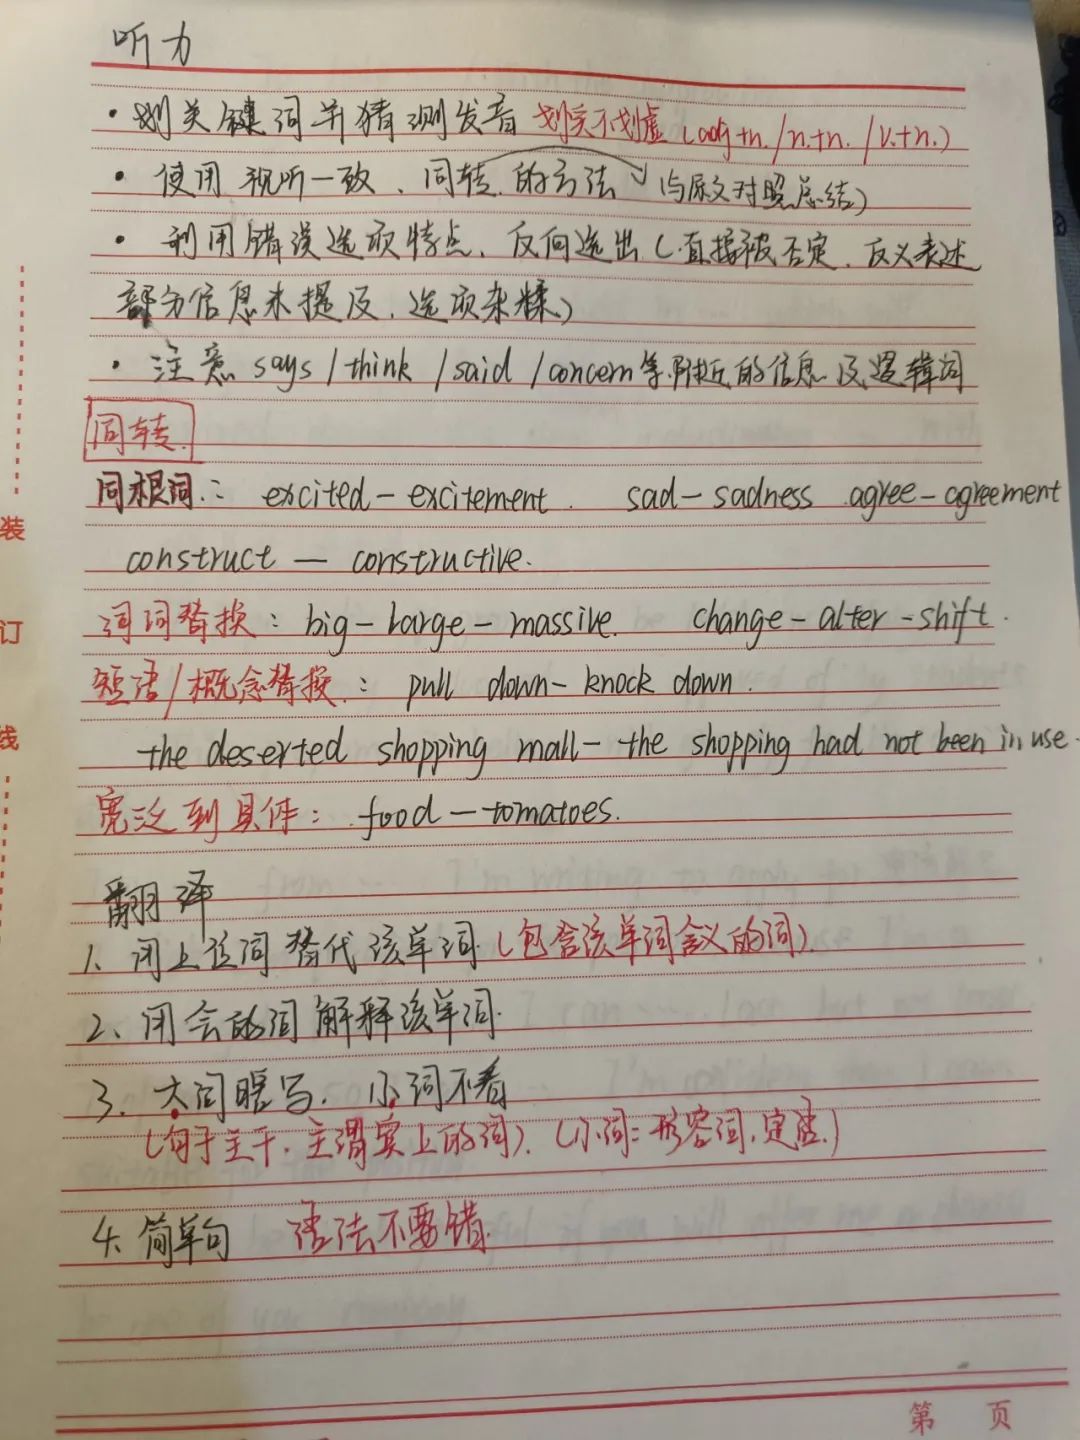 听力
· 划关键词并猜测发音 划实不划虚 (adj+n. / n.+n. / v.+n.)
· 使用视听一致、同转的方法 (与原文对照总结)
· 利用错误选项特点、反向选出 (直接被否定、反义表述
部分信息未提及、选项杂糅)
· 注意 says / think / said / concern等附近的信息及逻辑词
同转.
同根词.: excited - excitement. sad - sadness agree - agreement
construct — constructive.
词词替换: big - large - massive. change - alter - shift.
短语/概念替换: pull down - knock down.
the deserted shopping mall - the shopping had not been in use.
宽泛到具体: food — tomatoes.
翻译
1、用上位词替代该单词 (包含该单词含义的词).
2、用会的词解释该单词.
3、大词瞎写. 小词不看
(句子主干, 主谓宾上的词). (小词: 形容词, 定语.)
4、简单句 语法不要错.
装
订
线
第 页